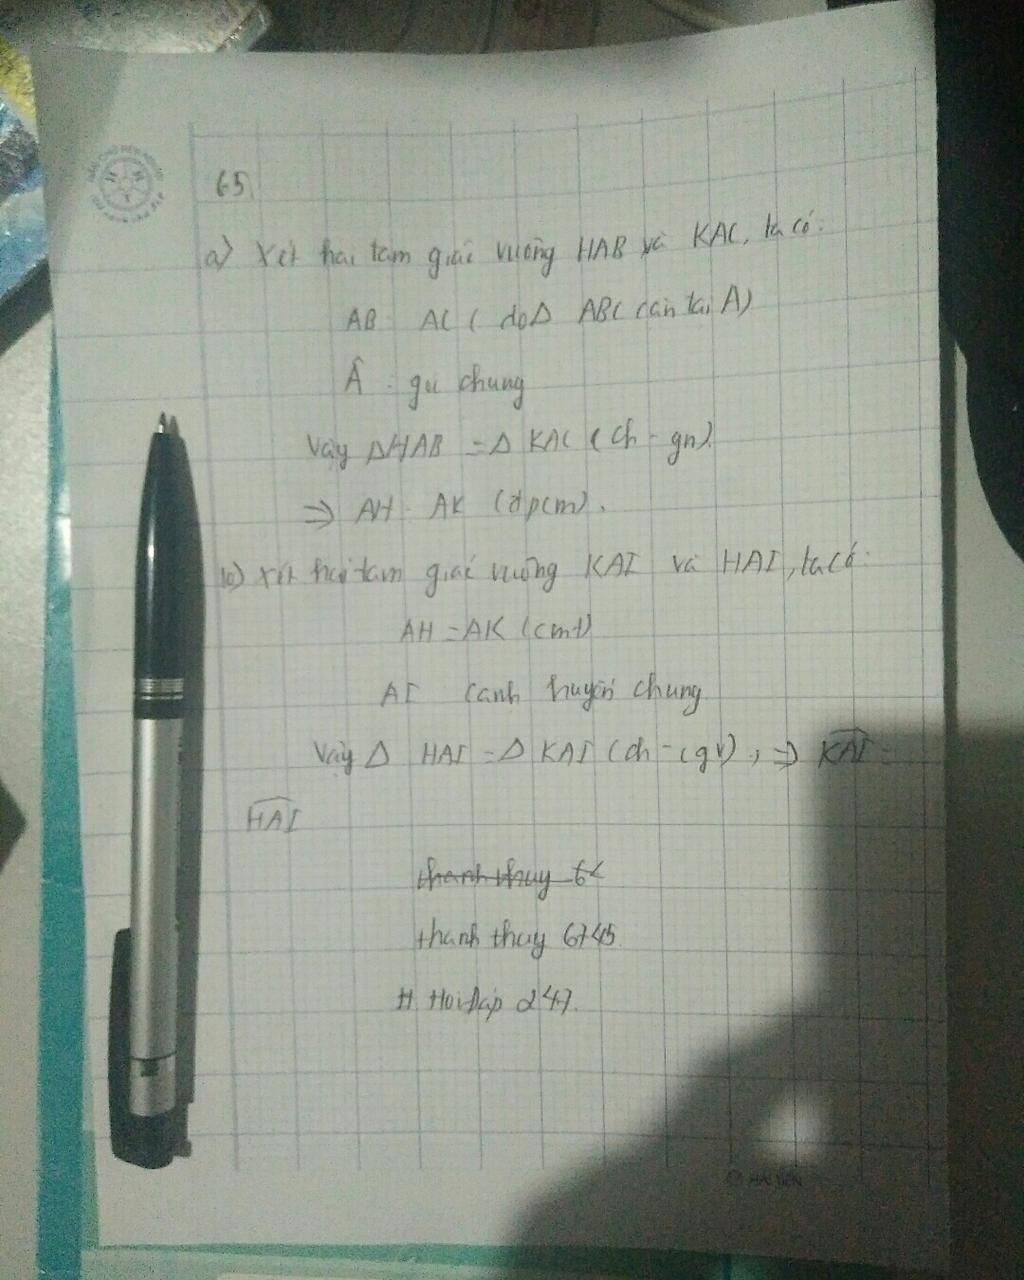 65
a) Xét hai tam giác vuông HAB và KAC, ta có:
AB = AC ( do Δ ABC cân tại A)
Â : góc chung
Vậy ΔHAB = Δ KAC ( ch - gn).
⇒ AH = AK (đpcm).
b) Xét hai tam giác vuông KAI và HAI, ta có:
AH = AK (cmt)
AI cạnh huyền chung
Vậy Δ HAI = Δ KAI (ch - cgv), ⇒ KAI =
HAI
thanh thuy 6
thanh thuy 6745
H. Hoidap 247.
HẢI TIẾN